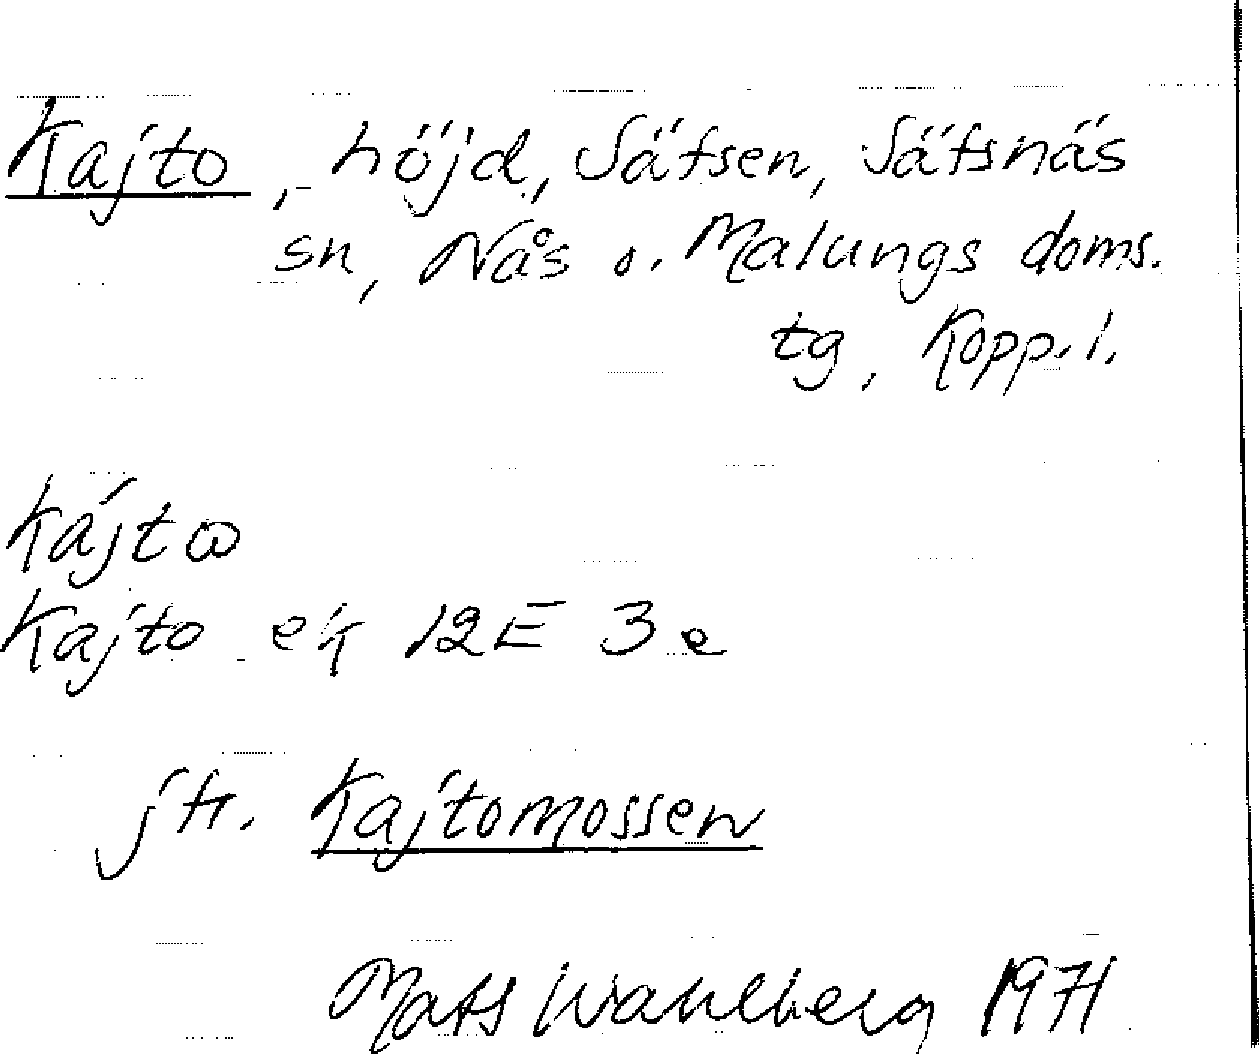 Kajto, höjd, Sätsen, Sätsnäs
sn, Nås o. Malungs doms.
tg, Kopp. l.
kájtω
Kajto ek 12E 3e
jfr. Kajtomossen
Mats Wahlberg 1971